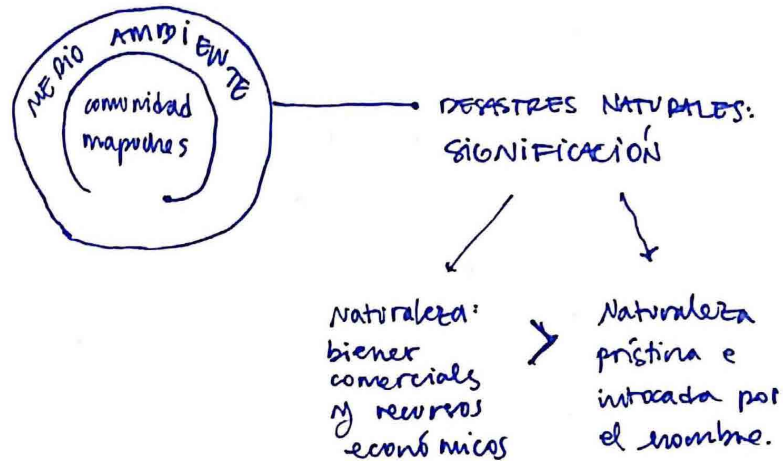 MEDIO AMBIENTE
comunidad
mapuches
DESASTRES NATURALES:
SIGNIFICACIÓN
Naturaleza:
bienes
comercials
y recursos
económicos
>
Naturaleza
prístina e
intocada por
el hombre.